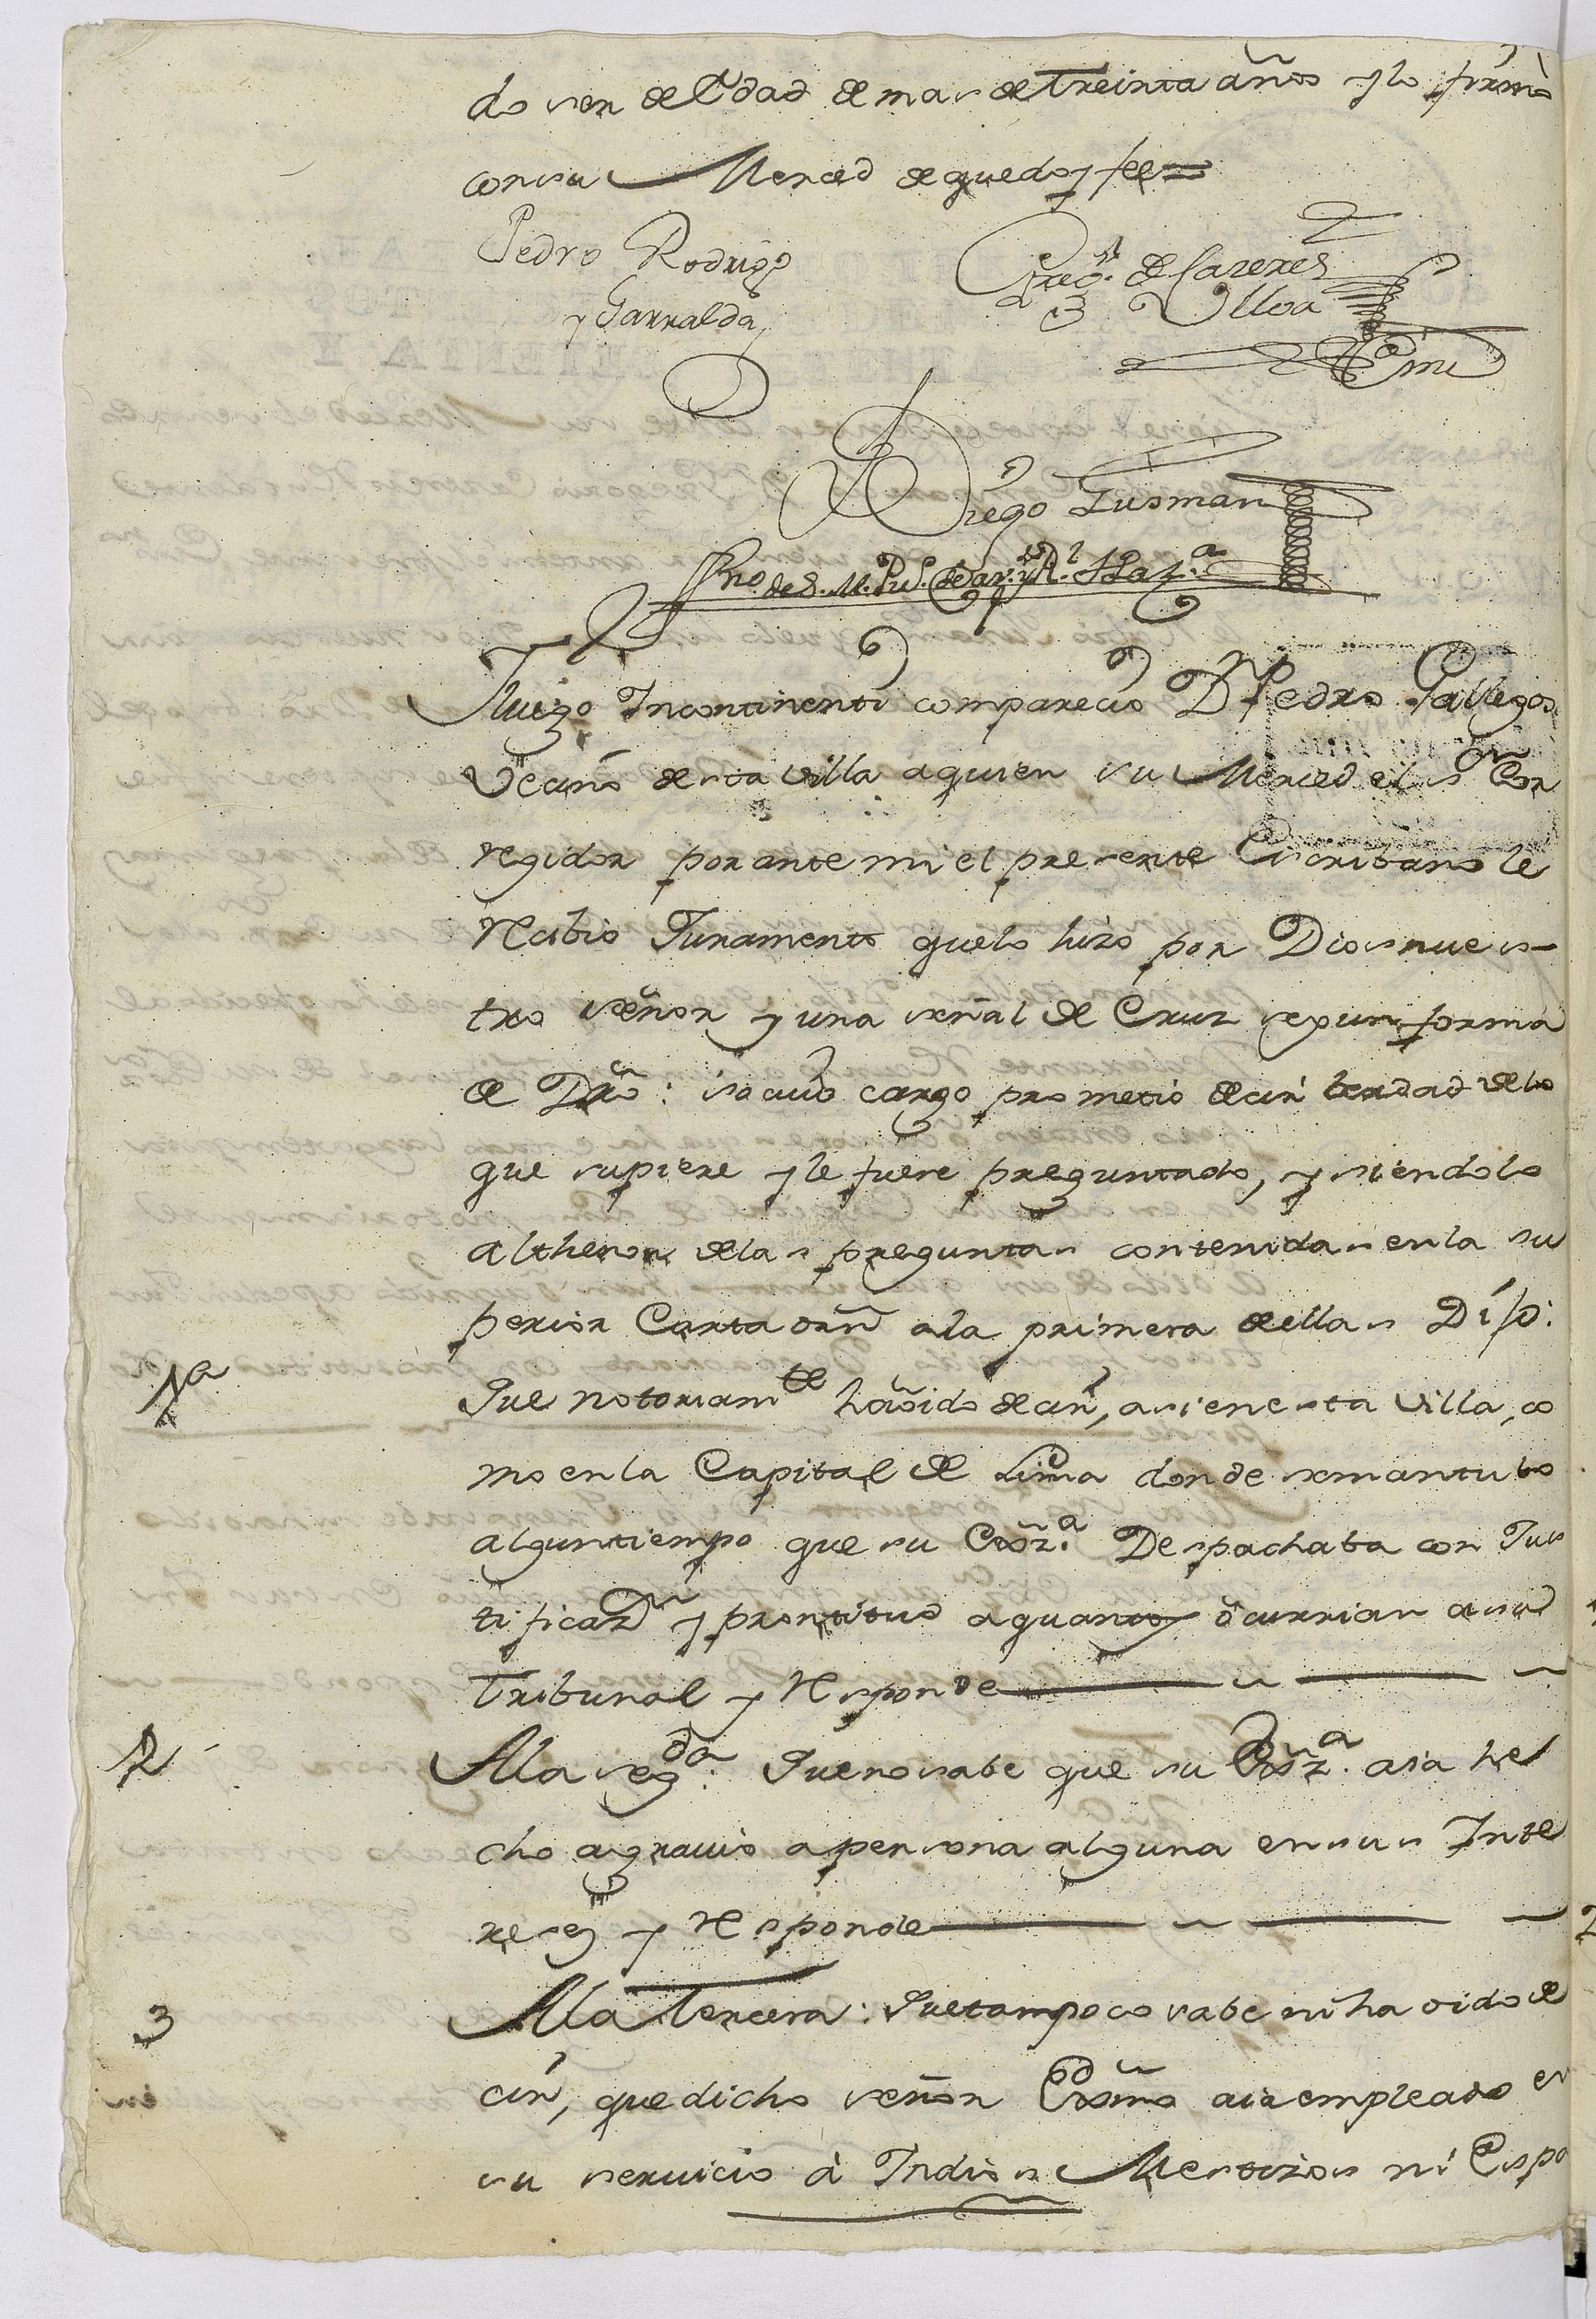 do ser de Edad de mas de Treinta años y lo firmò
con su Merced de que doy fee=
Pedro Rodrigz
y Garralda
Greg.º de Cazeres
Ulloa
Ante mi
Diego Gusman
Sno. de S. M. Pu.co
Luego Incontinenti comparecio Dn Pedro Gallegos
Vecino de esta villa a quien su Merced el sr Cor
regidor por ante mi el presente Escribano le
Recibio Juramento que lo hizo por Dios nues-
tro señor y una señal de Cruz segun forma
de Dro: so cuio cargo prometio decir berdad de lo
que supiere y le fuere preguntado, y siendolo
al thenor de las preguntas contenidas en la su
perior Carta orñ a la primera de ellas Dijo:
1a
Que notoriamte ha oido decir, asi en esta villa, co
mo en la Capital de Lima donde se mantubo
algun tiempo que su Exz.a Despachaba con Jus
tificazn y prontitud a quantos ocurrian a su
Tribunal y Responde
2
A la segda: Que no sabe que su Exz.a aia he
cho agravio a persona alguna en sus Inte
reses y Responde
3
A la Tercera: Que tampoco sabe ni ha oido de
cir, que dicho señor Exmo aia empleado en
su servicio à Indios Mestizos ni Espa